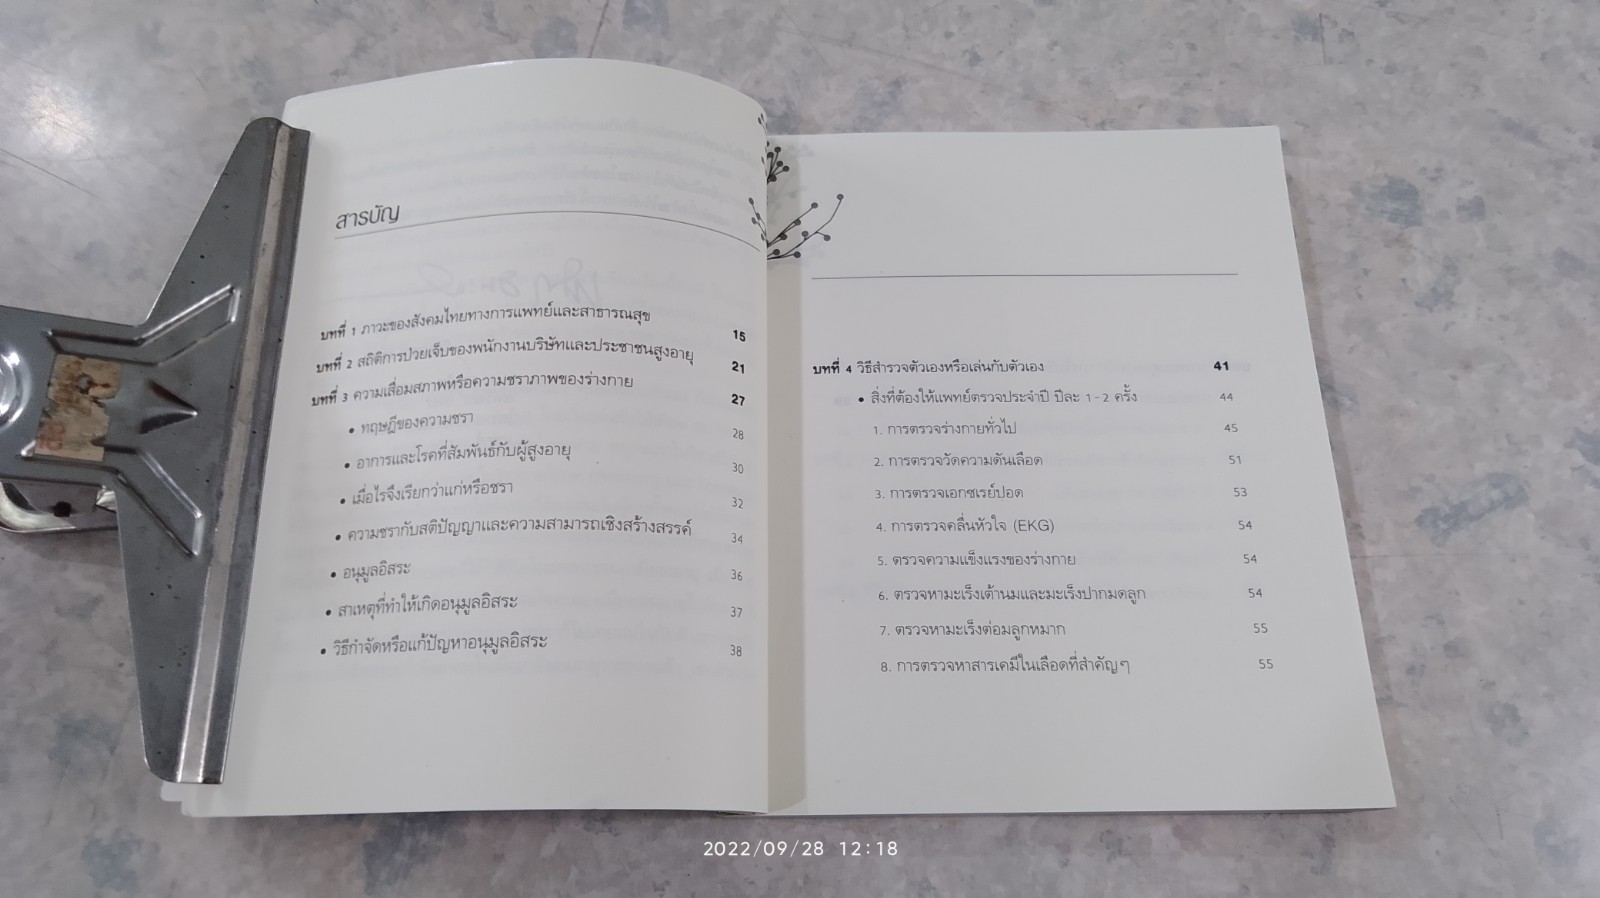 สารบัญ
บทที่ 1 ภาวะของสังคมไทยทางการแพทย์และสาธารณสุข 15
บทที่ 2 สถิติการป่วยเจ็บของพนักงานบริษัทและประชาชนสูงอายุ 21
บทที่ 3 ความเสื่อมสภาพหรือความชราภาพของร่างกาย 27
• ทฤษฎีของความชรา 28
• อาการและโรคที่สัมพันธ์กับผู้สูงอายุ 30
• เมื่อไรจึงเรียกว่าแก่หรือชรา 32
• ความชรากับสติปัญญาและความสามารถเชิงสร้างสรรค์ 34
• อนุมูลอิสระ 36
• สาเหตุที่ทำให้เกิดอนุมูลอิสระ 37
• วิธีกำจัดหรือแก้ปัญหาอนุมูลอิสระ 38
บทที่ 4 วิธีสำรวจตัวเองหรือเล่นกับตัวเอง 41
• สิ่งที่ต้องให้แพทย์ตรวจประจำปี ปีละ 1-2 ครั้ง 44
1. การตรวจร่างกายทั่วไป 45
2. การตรวจวัดความดันเลือด 51
3. การตรวจเอกซเรย์ปอด 53
4. การตรวจคลื่นหัวใจ (EKG) 54
5. ตรวจความแข็งแรงของร่างกาย 54
6. ตรวจหามะเร็งเต้านมและมะเร็งปากมดลูก 54
7. ตรวจหามะเร็งต่อมลูกหมาก 55
8. การตรวจหาสารเคมีในเลือดที่สำคัญๆ 55
2022/09/28 12:18